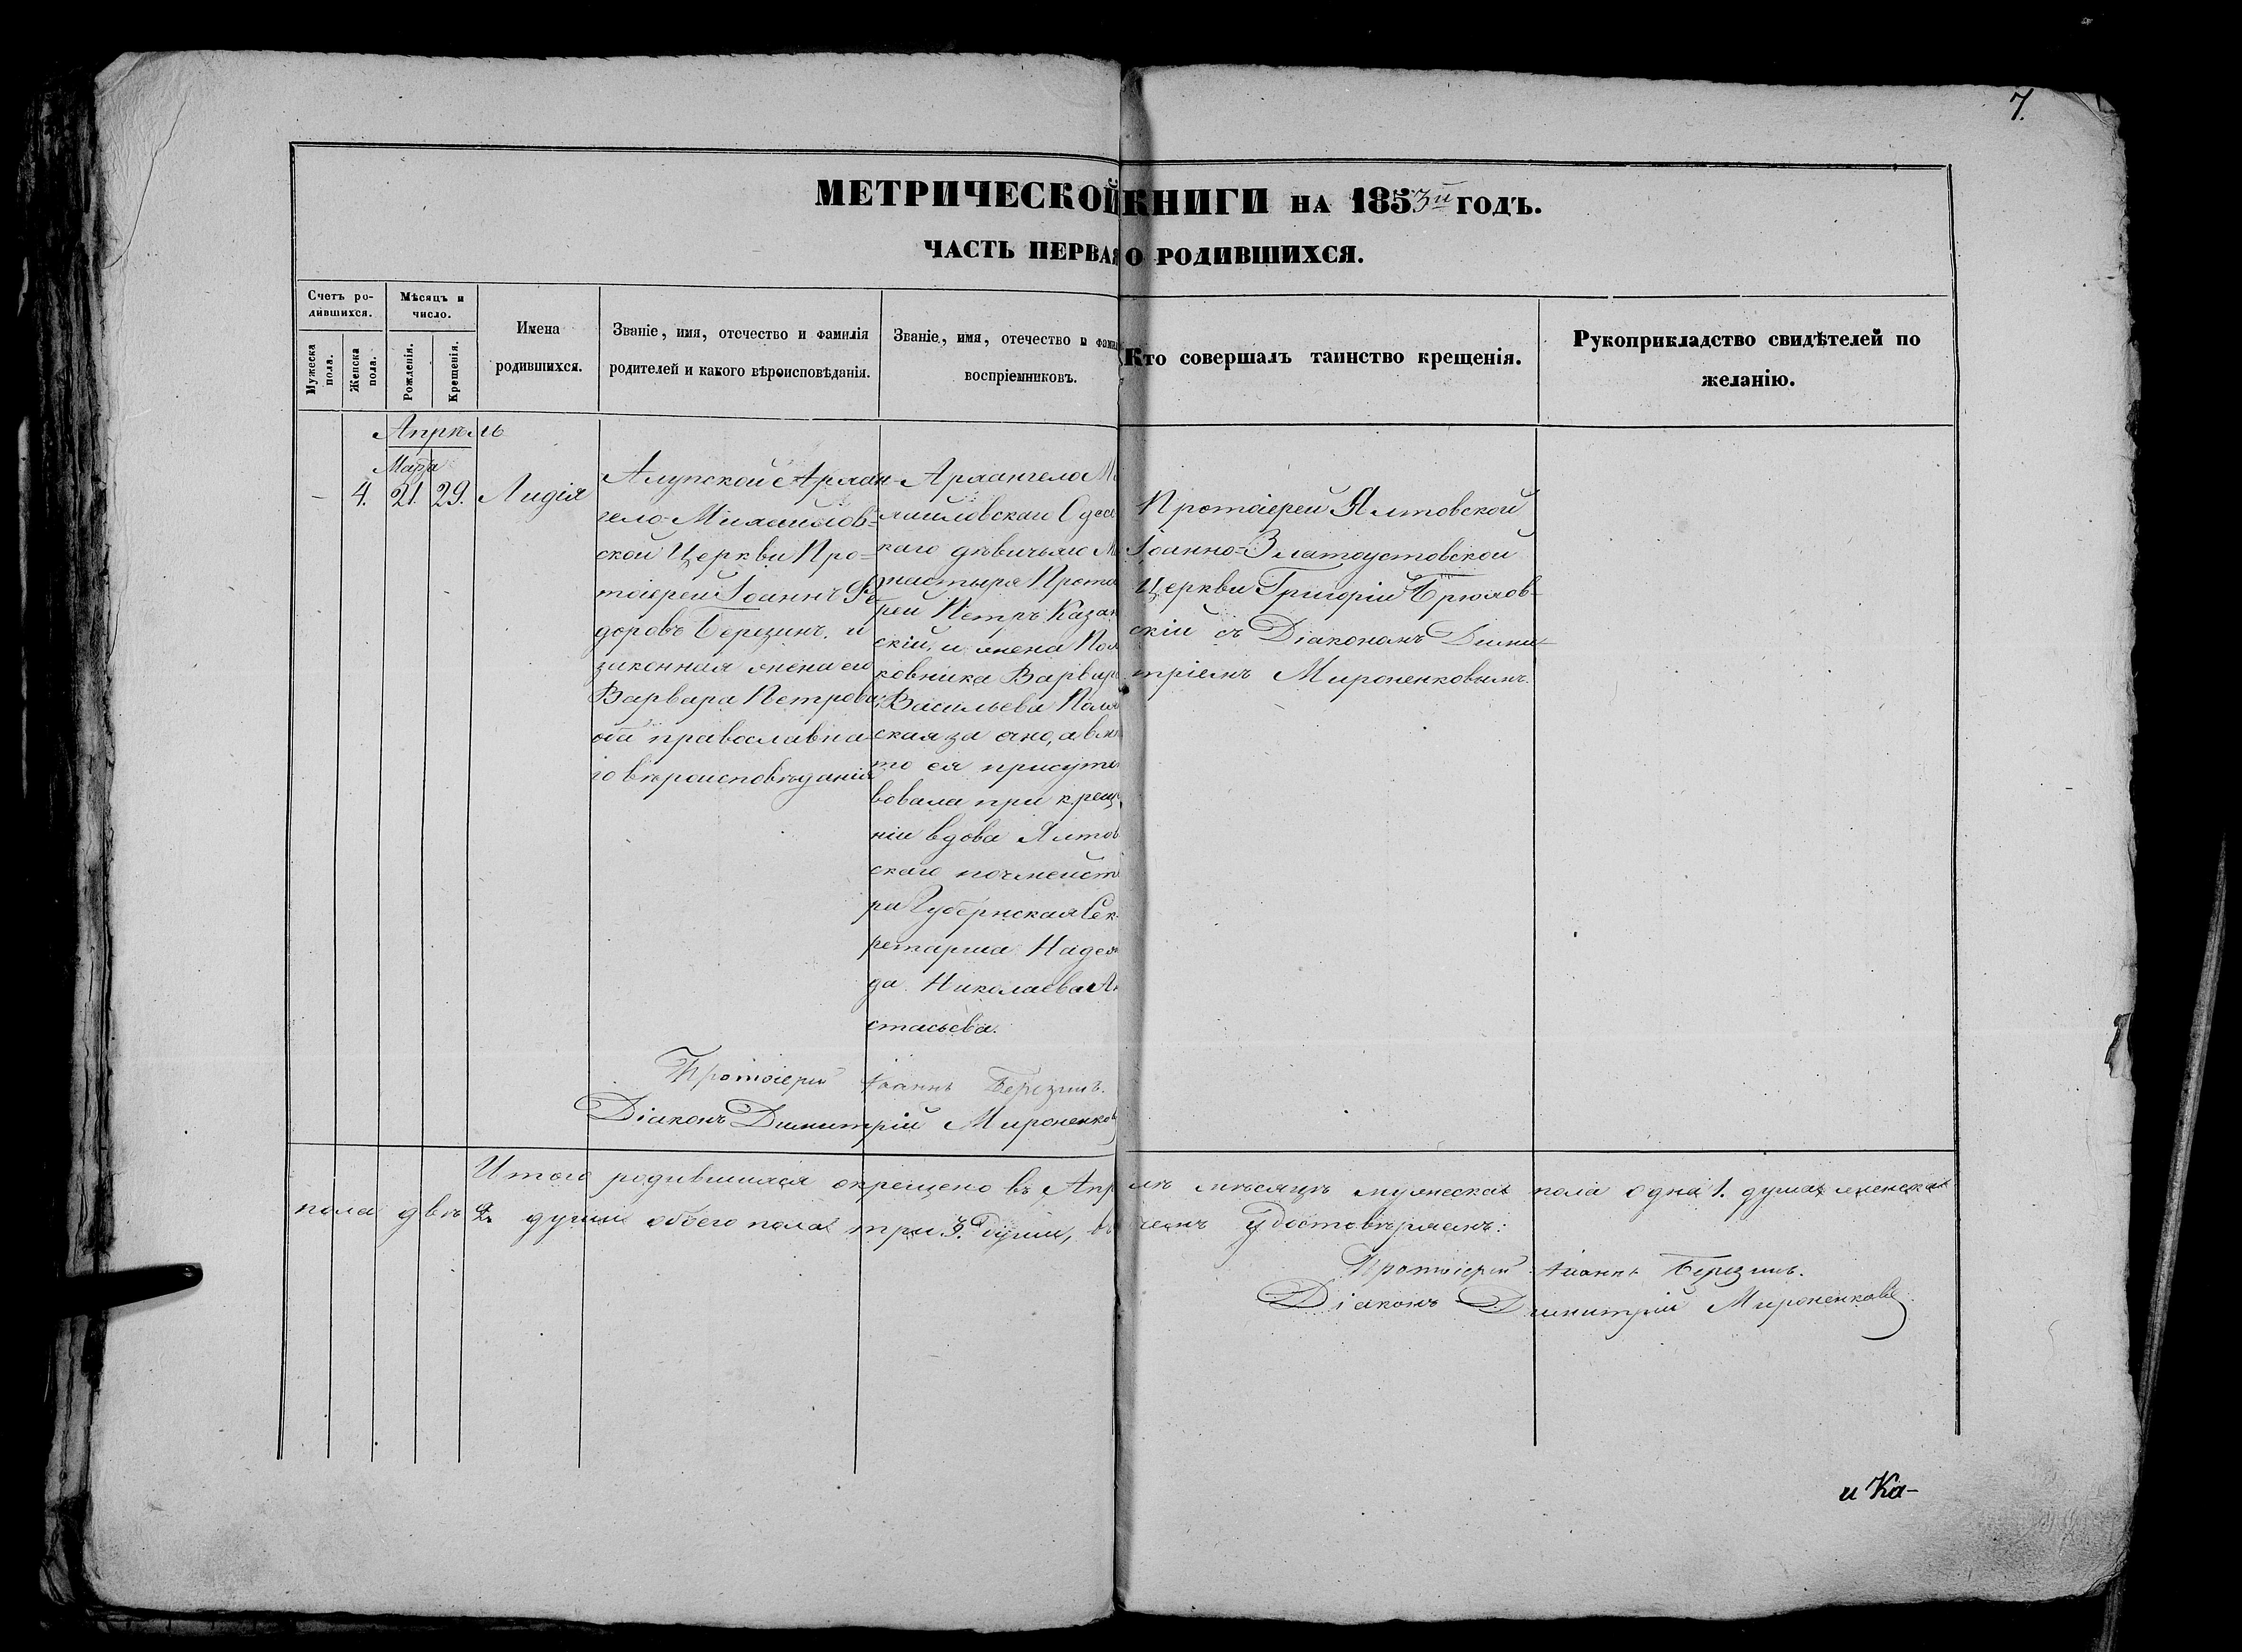 7.
МЕТРИЧЕСКОЙ КНИГИ НА 1853й ГОДЪ.
ЧАСТЬ ПЕРВАЯ О РОДИВШИХСЯ.
Счетъ ро-
дившихся.
Мужеска
пола.
Женска
пола.
Мѣсяцъ и
число.
Рожденія.
Крещенія.
Имена
родившихся.
Званіе, имя, отечество и фамилія
родителей и какого вѣроисповѣданія.
Званіе, имя, отечество и фами
воспріемниковъ.
Кто совершалъ таинство крещенія.
Рукоприкладство свидѣтелей по
желанію.
Апрѣль
- 4. 21. 29. Лидія
Алупской Архан-
гело-Михайлов-
ской Церкви Про-
тоіерей Іоаннъ Ѳе-
доровъ Березинъ. и
законная жена его
Варвара Петрова,
оба православна-
го вѣроисповѣданія
Архангело М
хайловскаго Одесс
каго дѣвичьяго М
настыря Протоі
рей Петръ Казан
скій, и жена Пол
ковника Варвар
Васильева Поль
ская за очно, а вмѣ
то ея присутс
вовала при креще
ніи вдова Ялтов
скаго почмейсте
ра Губернская Сек
ретарша Надеж
да Николаева Ан
стасьева.
Протоіерей Ялтовской
Іоанно-Златоустовской
Церкви Григорій Брюхов-
скій съ Діакономъ Дими-
тріемъ Мироненковымъ.
Протоіерей Іоаннъ Березинъ.
Діаконъ Димитрій Мироненков
Итого родившихся окрещено въ Апрѣлѣ мѣсяцѣ мужеска пола одна 1. душа женска
пола двѣ 2. души обоего пола три 3. души, въ чемъ удостовѣряемъ:
Протоіерей Іоаннъ Березинъ.
Діаконъ Димитрій Мироненковъ
и Ка-